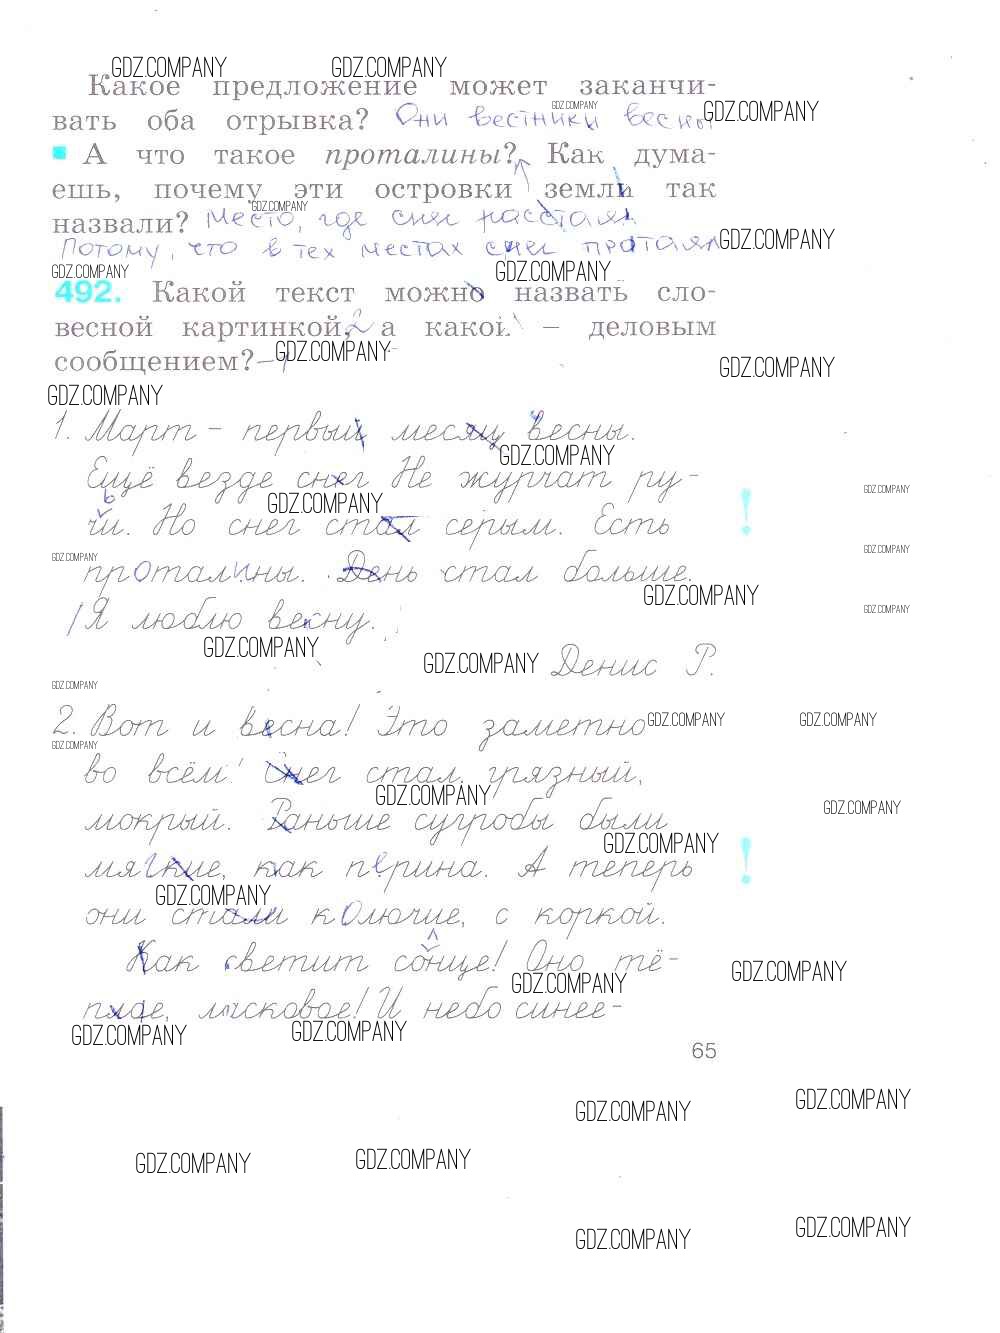 GDZ.COMPANY GDZ.COMPANY
Какое предложение может заканчи-
вать оба отрывка? Они вестники весны
GDZ.COMPANY GDZ.COMPANY
А что такое проталины? Как дума-
ешь, почему эти островки земли так
GDZ.COMPANY
назвали? Место, где снег расстаял.
Потому, что в тех местах снег протаял
GDZ.COMPANY
GDZ.COMPANY GDZ.COMPANY
492. Какой текст можно назвать сло-
весной картинкой, 2 а какой – деловым
сообщением? – 1
GDZ.COMPANY
GDZ.COMPANY
GDZ.COMPANY
1. Март – первый месяц весны.
GDZ.COMPANY
Ещё везде снег Не журчат ру-
GDZ.COMPANY
GDZ.COMPANY
чьи. Но снег стал серым. Есть
GDZ.COMPANY GDZ.COMPANY
проталины. День стал больше.
GDZ.COMPANY
GDZ.COMPANY
Я люблю весну.
GDZ.COMPANY
GDZ.COMPANY Денис Р.
GDZ.COMPANY
2. Вот и весна! Это заметно
GDZ.COMPANY GDZ.COMPANY
GDZ.COMPANY
во всём! Снег стал грязный,
GDZ.COMPANY
GDZ.COMPANY
мокрый. Раньше сугробы были
GDZ.COMPANY
мягкие, как перина. А теперь
GDZ.COMPANY
они стали колючие, с коркой.
Как светит сонце! Оно тё-
GDZ.COMPANY
GDZ.COMPANY
плое, ласковое! И небо синее-
GDZ.COMPANY GDZ.COMPANY
65
GDZ.COMPANY GDZ.COMPANY
GDZ.COMPANY GDZ.COMPANY
GDZ.COMPANY GDZ.COMPANY